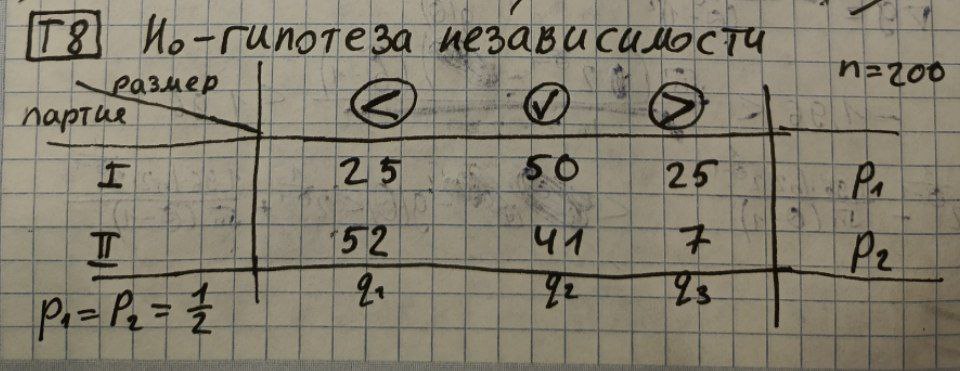 T8 H₀-гипотеза независимости
n=200
размер
партия < ✓ >
I 25 50 25 p₁
II 52 41 7 p₂
q₁ q₂ q₃
p₁ = p₂ = 1/2